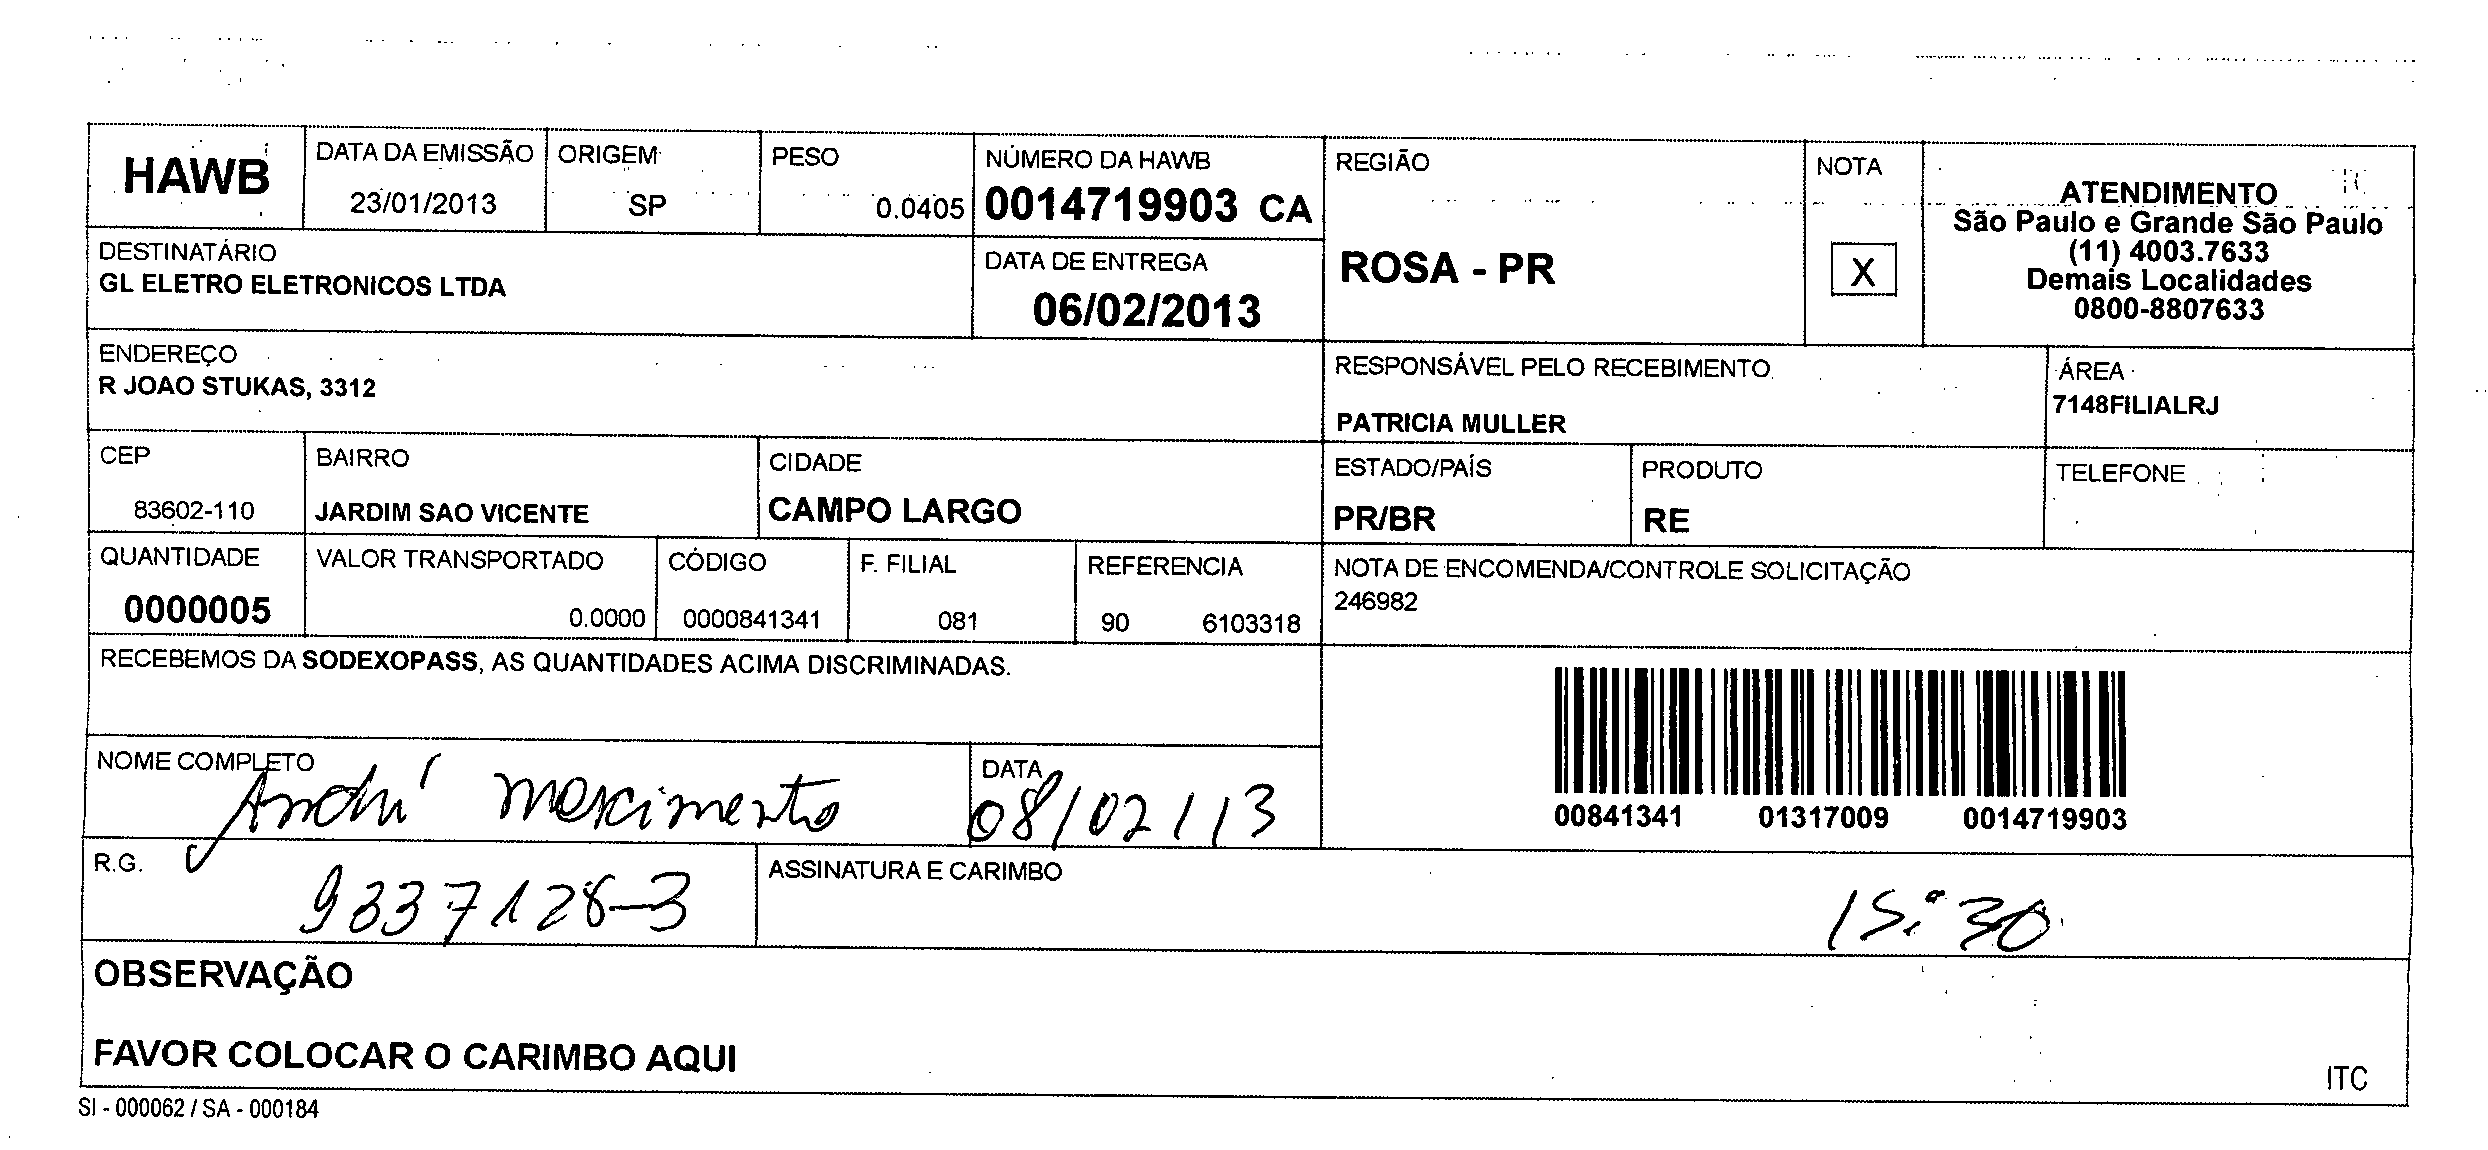 HAWB
DATA DA EMISSÃO
23/01/2013
ORIGEM
SP
PESO
0.0405
NÚMERO DA HAWB
0014719903 CA
REGIÃO
ROSA - PR
NOTA
X
ATENDIMENTO
São Paulo e Grande São Paulo
(11) 4003.7633
Demais Localidades
0800-8807633
DESTINATÁRIO
GL ELETRO ELETRONICOS LTDA
DATA DE ENTREGA
06/02/2013
ENDEREÇO
R JOAO STUKAS, 3312
RESPONSÁVEL PELO RECEBIMENTO
PATRICIA MULLER
ÁREA
7148FILIALRJ
CEP
83602-110
BAIRRO
JARDIM SAO VICENTE
CIDADE
CAMPO LARGO
ESTADO/PAÍS
PR/BR
PRODUTO
RE
TELEFONE
QUANTIDADE
0000005
VALOR TRANSPORTADO
0.0000
CÓDIGO
0000841341
F. FILIAL
081
REFERENCIA
90 6103318
NOTA DE ENCOMENDA/CONTROLE SOLICITAÇÃO
246982
RECEBEMOS DA SODEXOPASS, AS QUANTIDADES ACIMA DISCRIMINADAS.
00841341 01317009 0014719903
NOME COMPLETO
André
DATA
08/02/13
R.G.
9337128-3
ASSINATURA E CARIMBO
15:30
OBSERVAÇÃO
FAVOR COLOCAR O CARIMBO AQUI
ITC
SI - 000062 / SA - 000184